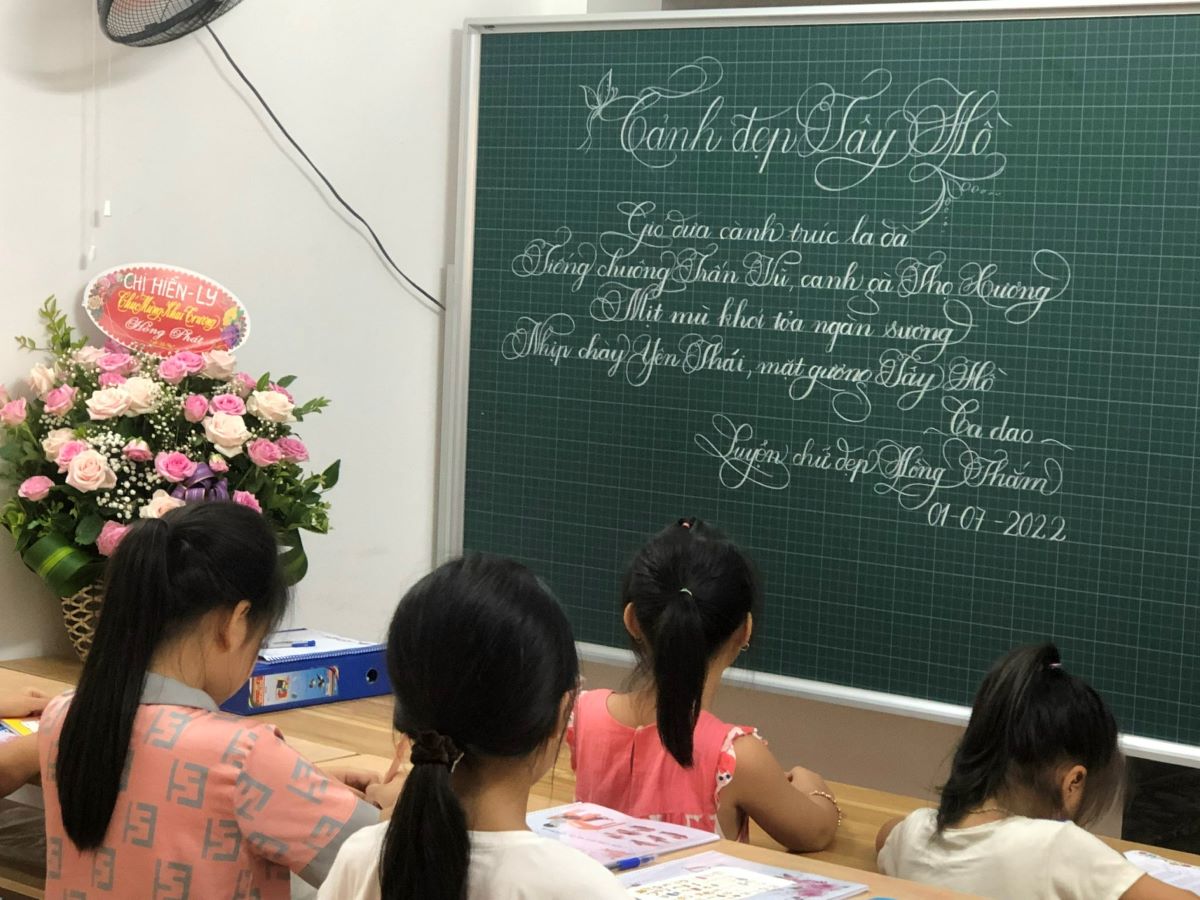 Cảnh đẹp Tây Hồ
Gió đưa cành trúc la đà
Tiếng chuông Trấn Vũ, canh gà Thọ Xương
Mịt mù khói tỏa ngàn sương
Nhịp chày Yên Thái, mặt gương Tây Hồ
Ca dao
Luyện chữ đẹp Hồng Thắm
01-07-2022
CHỊ HIỀN-LY
Chúc Mừng Khai Trương
Hồng Phát